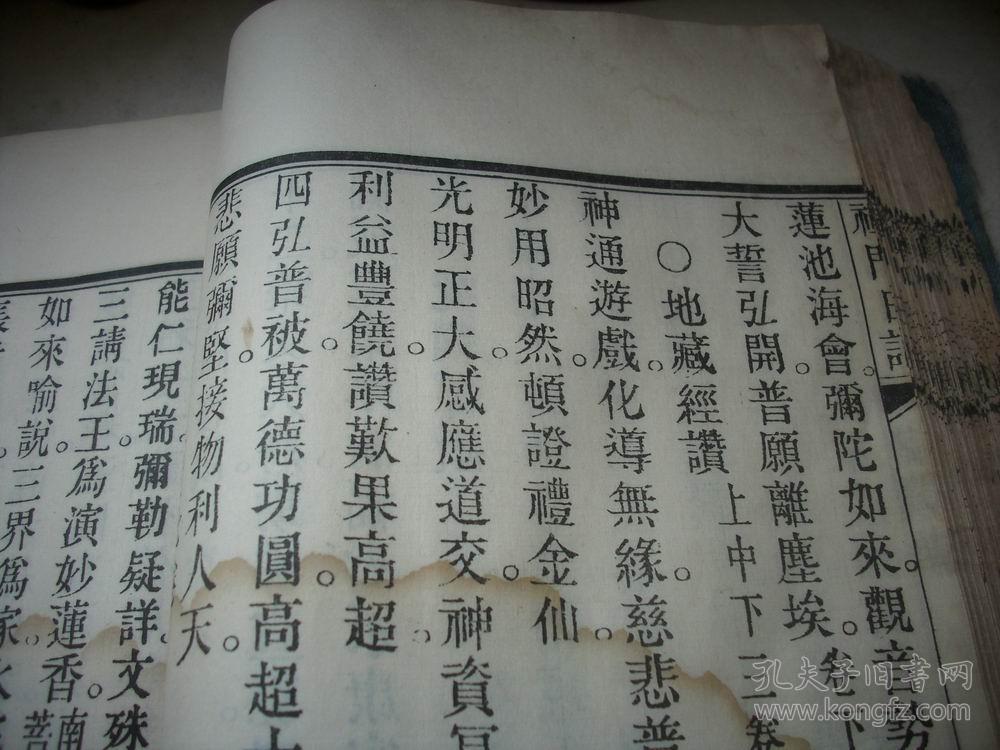 禪門日誦
蓮池海會。彌陀如來。觀音勢
大誓弘開。普願離塵埃。卷下
○地藏經讚 上中下三卷
神通遊戲。化導無緣。慈悲普
妙用昭然。頓證禮金仙。
光明正大。感應道交。神資冥
利益豐饒。讚歎果高超。
四弘普被。萬德功圓。高超上
悲願彌堅。接物利人天。
能仁現瑞。彌勒疑詳。文殊
三請法王。爲演妙蓮香。南
菩
如來喻說。三界爲家。
孔夫子旧书网
www.kongfz.com